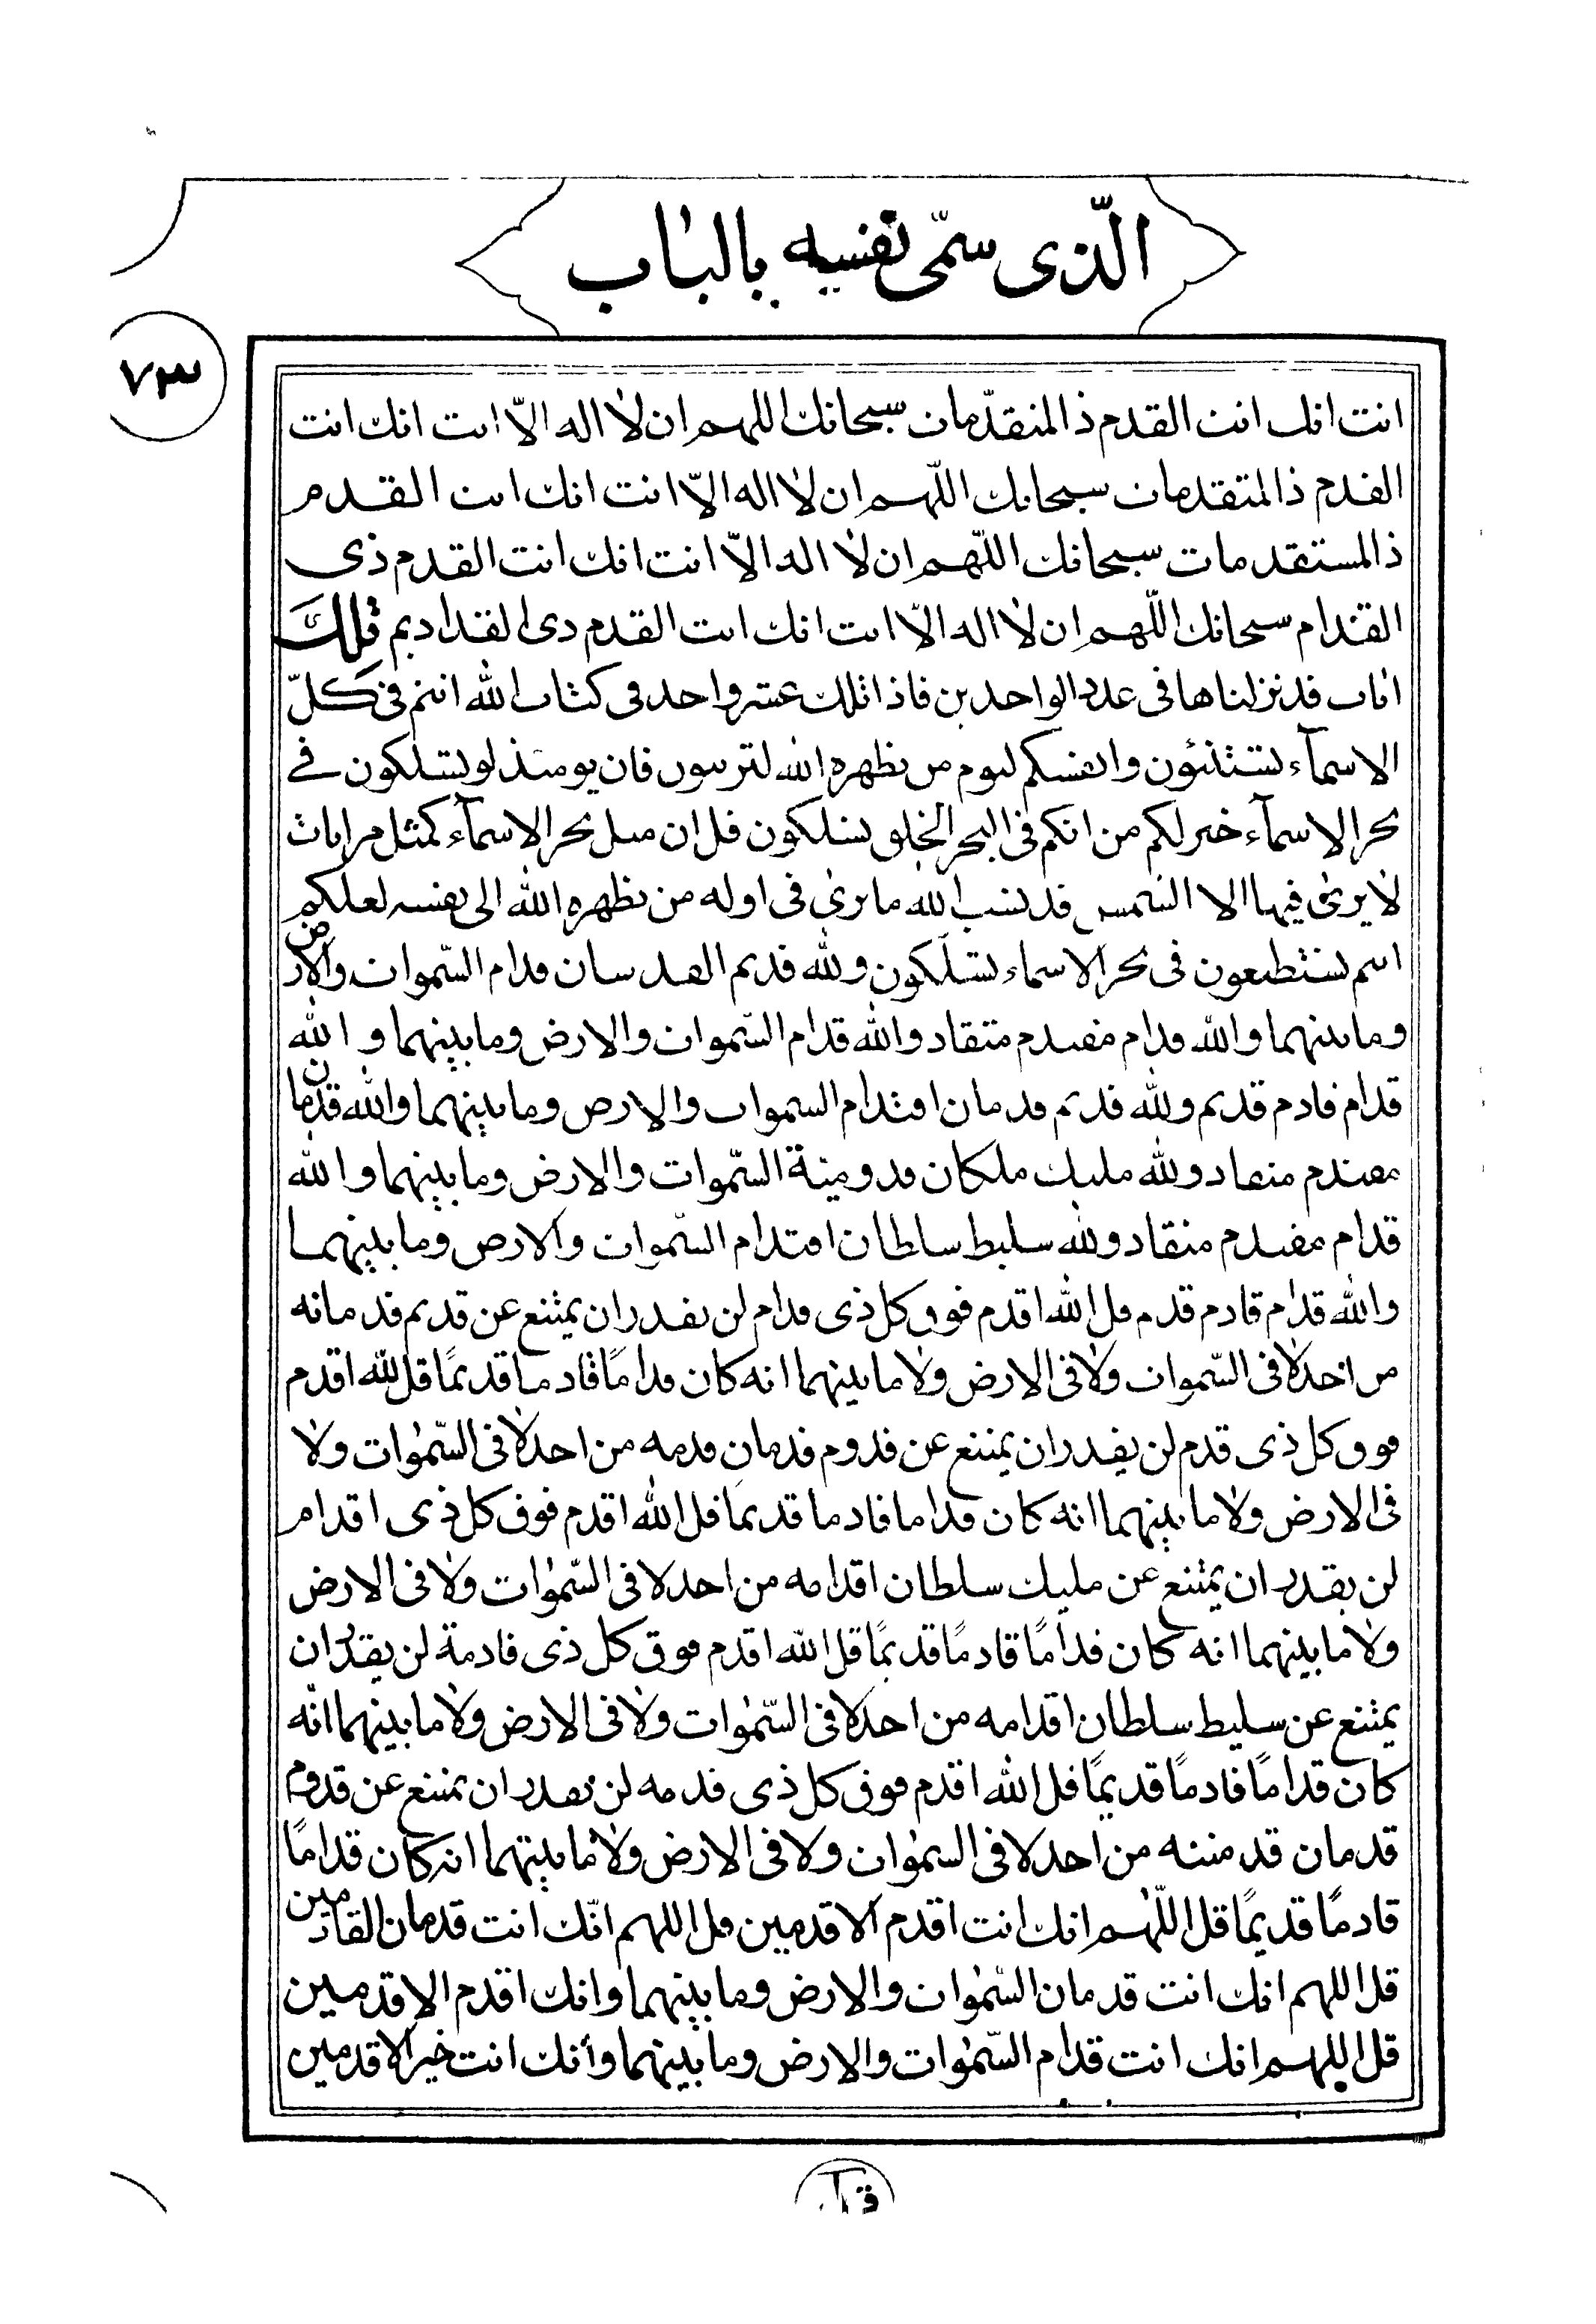 الّذى سمّى نفسه بالباب
٧٣
انت انك انت القدم ذالمنقدّمات سبحانك اللهم ان لا اله الاّ انت انك انت
القدم ذالمتقدمات سبحانك اللّهم ان لا اله الاّ انت انك انت القدم
ذالمستقدمات سبحانك اللّهم ان لا اله الاّ انت انك انت القدم ذى
القتدام سبحانك اللّهم ان لا اله الاّ انت انك انت القدم ذى القداديم تلك
ايات قد نزلناها فى عدد الواحدين فاذا تلك عشر واحد فى كتاب الله انتم فى كلّ
الاسمآء تستنبئون وانفسكم ليوم من يظهره الله لتربيون فان يومئذ لو تسلكون فى
بحر الاسمآء خير لكم من انكم فى البحر الخلق تسلكون قل ان مثل بحر الاسمآء كمثل مرايات
لا يرى فيها الا الشمس قد نسب الله ما يرى فى اوله من يظهره الله الى نفسه لعلكم
انتم تستطيعون فى بحر الاسماء تسلكون ولله قديم قدام السّموات والارض
وما بينهما والله قدام مقتدم متقاد والله قدام السّموات والارض وما بينهما والله
قدام قادم قديم ولله قديم قدمان اقتدام السموات والارض وما بينهما والله قدمان
مقتدم متقاد ولله مليك ملكان قدومية السّموات والارض وما بينهما والله
قدام مقتدم متقاد ولله سليط سلطان اقتدام السّموات والارض وما بينهما
والله قدام قادم قدم قل الله اقدم فوق كل ذى قدام لن يقدر ان يمتنع عن قديم قدمانه
من احد لا فى السّموات ولا فى الارض ولا ما بينهما انه كان قدامًا قادما قديمًا قل الله اقدم
فوق كل ذى قدم لن يقدر ان يمتنع عن قدوم قدمان قدمه من احد لا فى السّموات ولا
فى الارض ولا ما بينهما انه كان قداما قادما قديما قل الله اقدم فوق كل ذى اقدام
لن يقدر ان يمتنع عن مليك سلطان اقدامه من احد لا فى السّموات ولا فى الارض
ولا ما بينهما انه كان قدامًا قادمًا قديمًا قل الله اقدم فوق كل ذى قادمة لن يقدر ان
يمتنع عن سليط سلطان اقدامه من احد لا فى السّموات ولا فى الارض ولا ما بينهما انّه
كان قدامًا قادمًا قديمًا قل الله اقدم فوق كل ذى قدمه لن يقدر ان يمتنع عن قدوم
قدمان قدمنته من احد لا فى السموات ولا فى الارض ولا ما بينهما انه كان قدامًا
قادمًا قديمًا قل اللّهم انك انت اقدم الاقدمين قل اللهم انّك انت قدمان القادمين
قل اللهم انك انت قدمان السّموات والارض وما بينهما وانك اقدم الاقدمين
قل اللهم انك انت قدام السّموات والارض وما بينهما وأنك انت خير الاقدمين